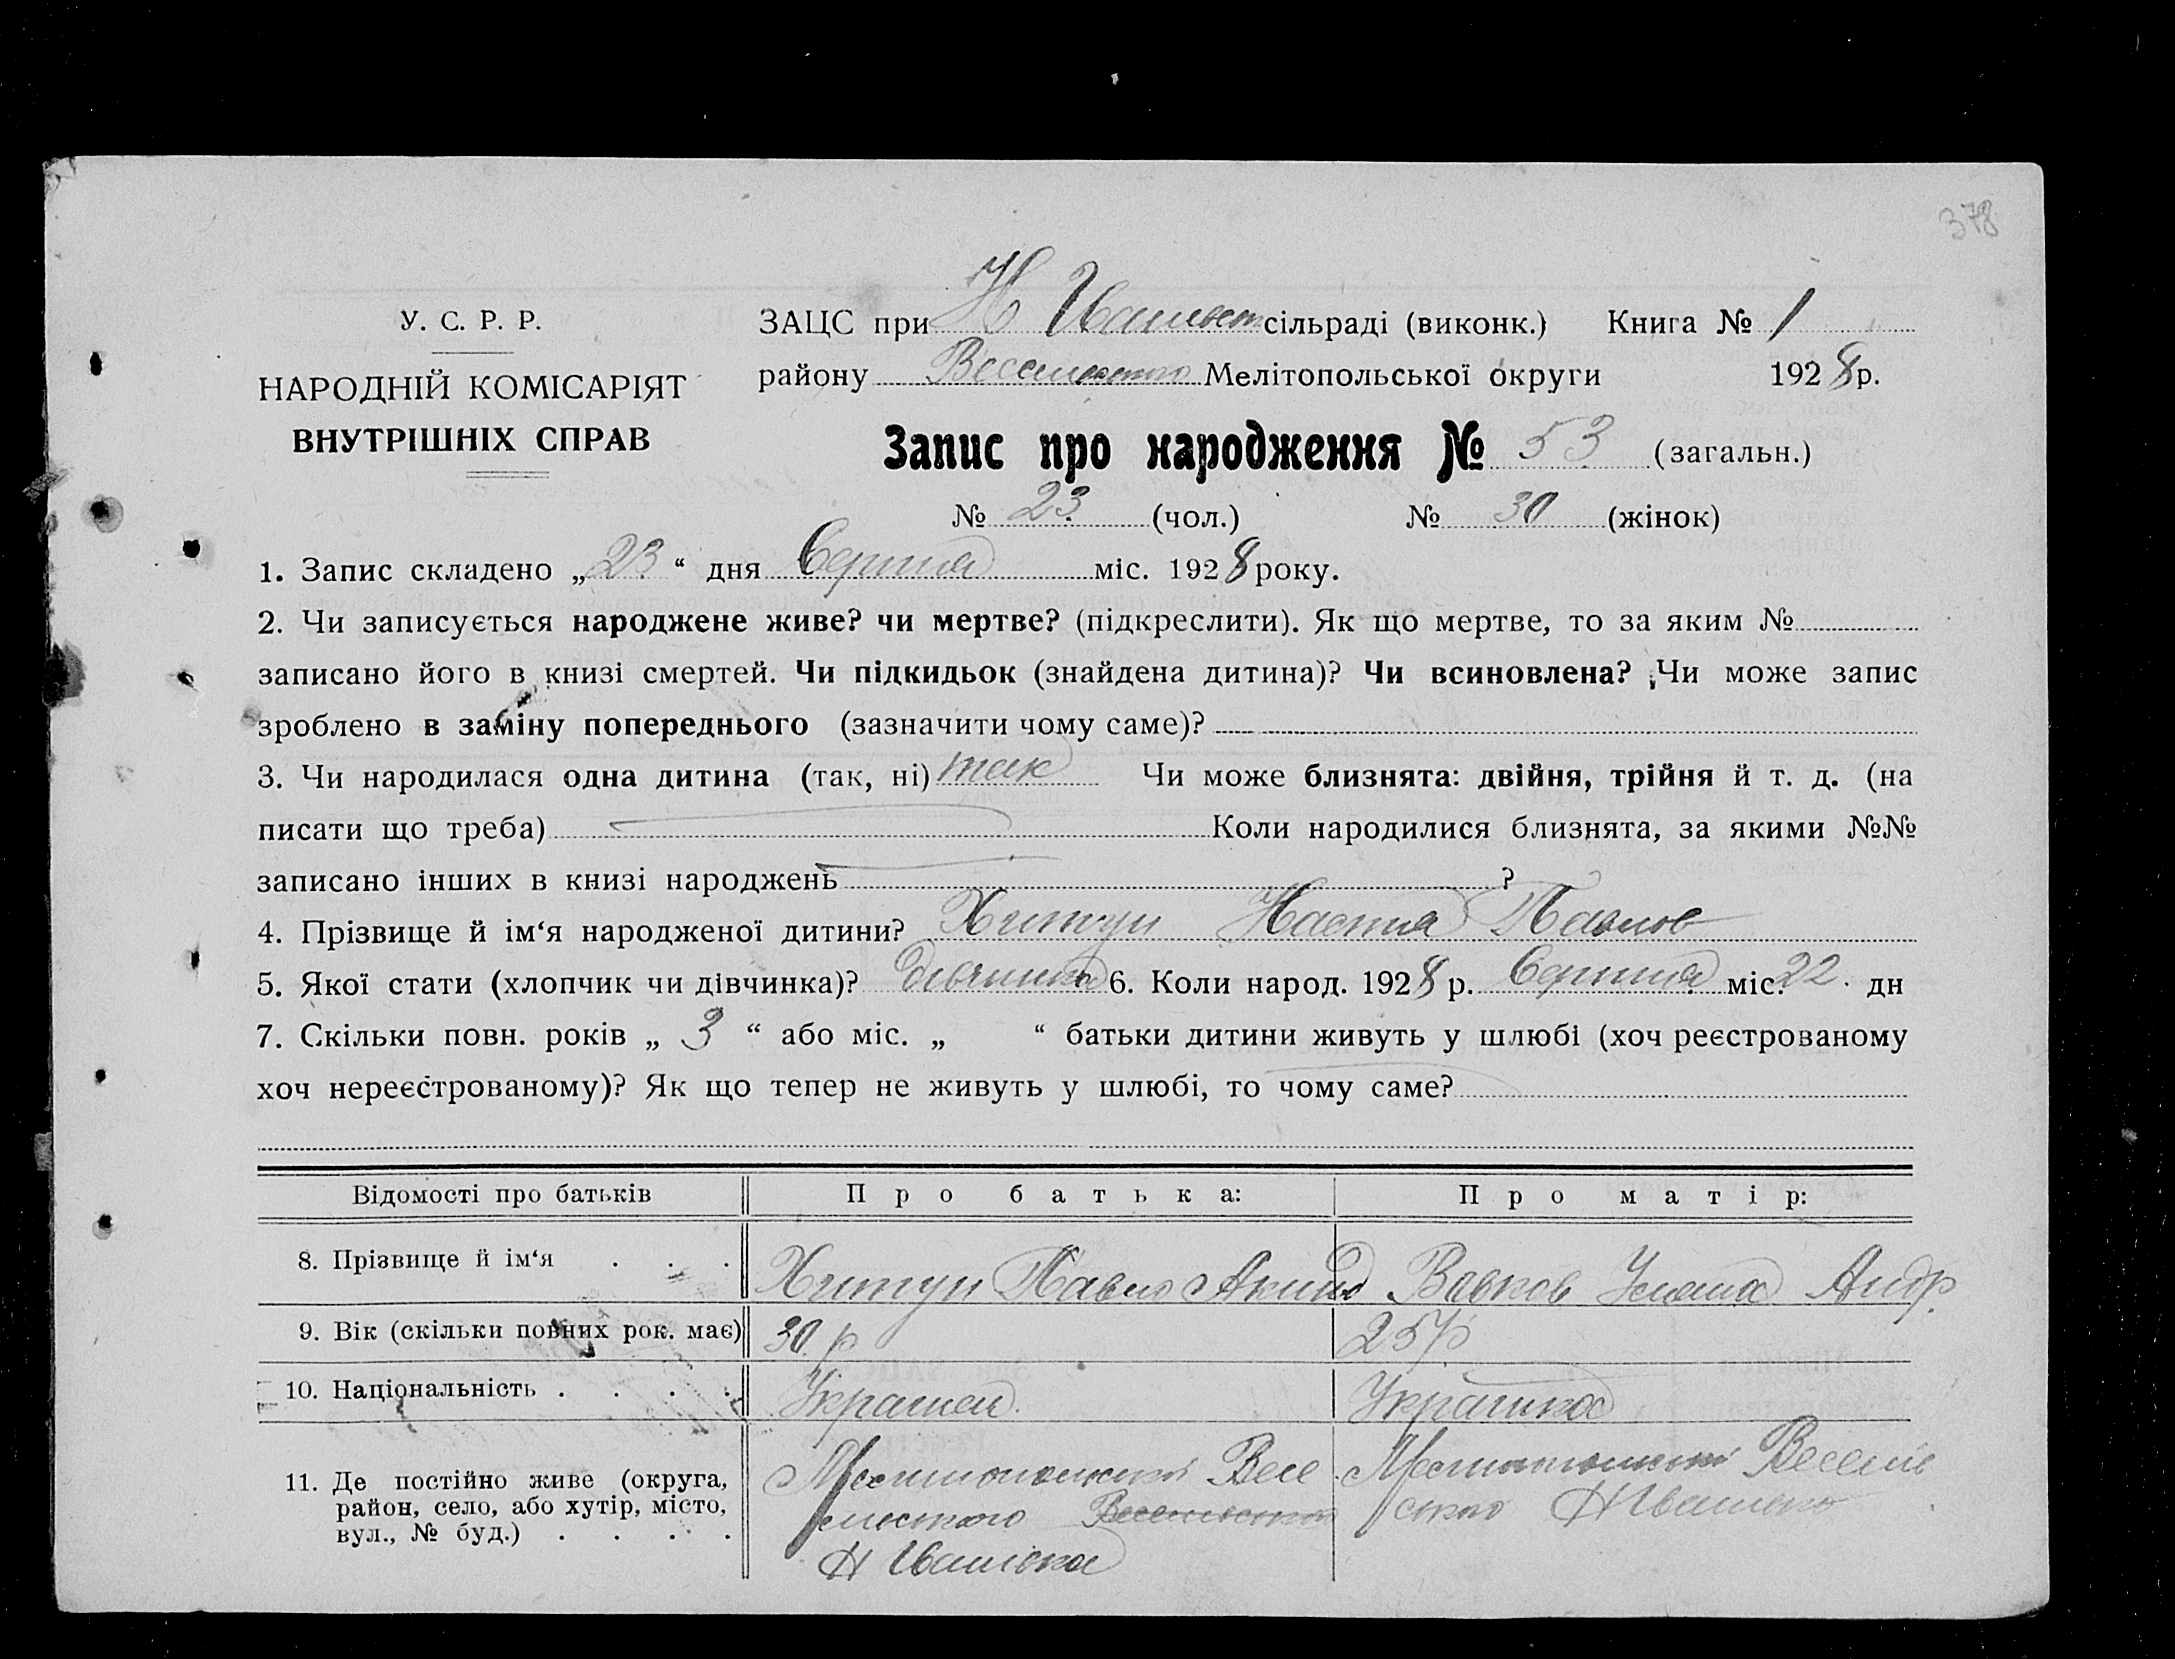 378
У. С. Р. Р.
НАРОДНІЙ КОМІСАРІЯТ
ВНУТРІШНІХ СПРАВ
ЗАЦС при Н Іванівск сільраді (виконк.) Книга № 1
району Веселівського Мелітопольської округи 1928 р.
Запис про народження № 53 (загальн.)
№ 23 (чол.) № 30 (жінок)
1. Запис складено „23“ дня Серпня міс. 1928 року.
2. Чи записується народжене живе? чи мертве? (підкреслити). Як що мертве, то за яким №
записано його в книзі смертей. Чи підкидьок (знайдена дитина)? Чи всиновлена? Чи може запис
зроблено в заміну попереднього (зазначити чому саме)?
3. Чи народилася одна дитина (так, ні) так Чи може близнята: двійня, трійня й т. д. (на
писати що треба) Коли народилися близнята, за якими №№
записано інших в книзі народжень ?
4. Прізвище й ім‘я народженої дитини? Хитун Настя Павлов
5. Якої стати (хлопчик чи дівчинка)? дівчинка 6. Коли народ. 1928 р. Серпня міс. 22 дн
7. Скільки повн. років „ 3 “ або міс. „ “ батьки дитини живуть у шлюбі (хоч реєстрованому
хоч нереєстрованому)? Як що тепер не живуть у шлюбі, то чому саме?
Відомості про батьків Про батька: Про матір:
8. Прізвище й ім‘я . . . Хитун Павло Акид Вовков Уляна Андр
9. Вік (скільки повних рок. має) 30 р 25 р
10. Національність . . . . Українец Українка
11. Де постійно живе (округа,
район, село, або хутір, місто,
вул., № буд.) . . . .
Мелитопольської Весе
лівського
Н Іванівка
Мелитопольської Веселів
ського Н Іванівка